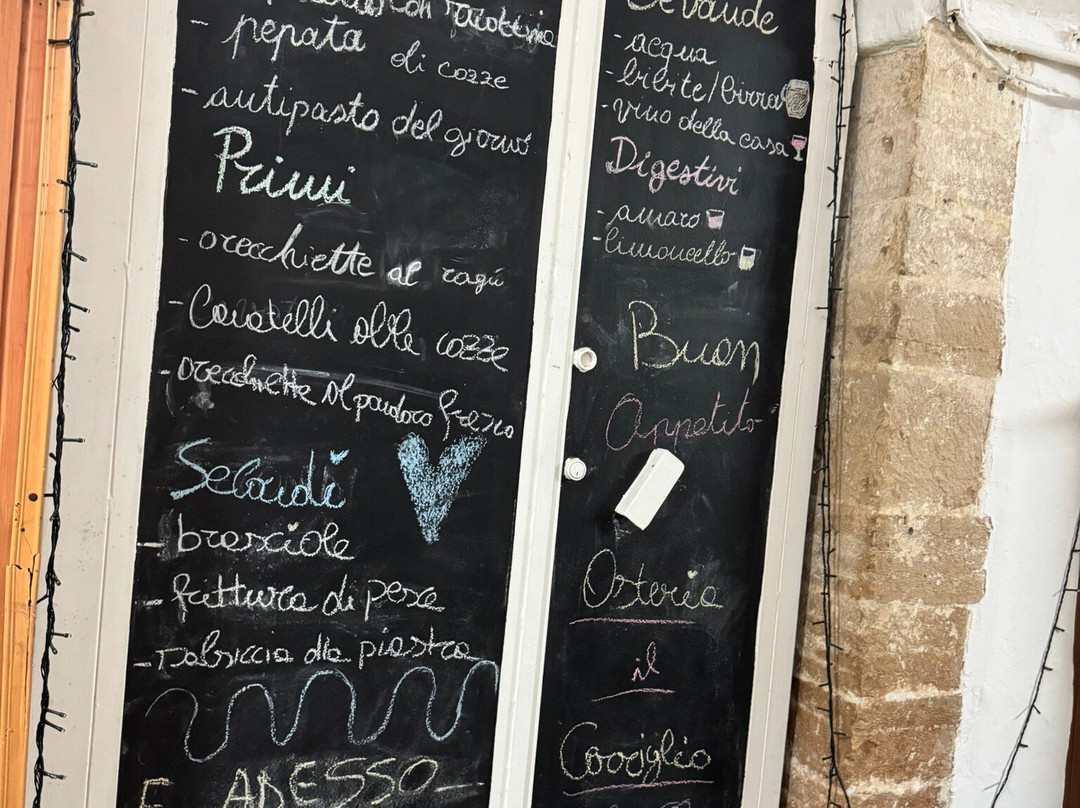 con
- pepata di cozze
- antipasto del giorno
Primi
- orecchiette al ragù
- Cavatelli alle cozze
- orecchiette al pomodoro fresco
Secondi
- brasciole
- frittura di pesce
- salsiccia alla piastra
E ADESSO
Bevande
- acqua
- bibite/birra
- vino della casa
Digestivi
- amaro
- limoncello
Buon
Appetito
Osteria
il